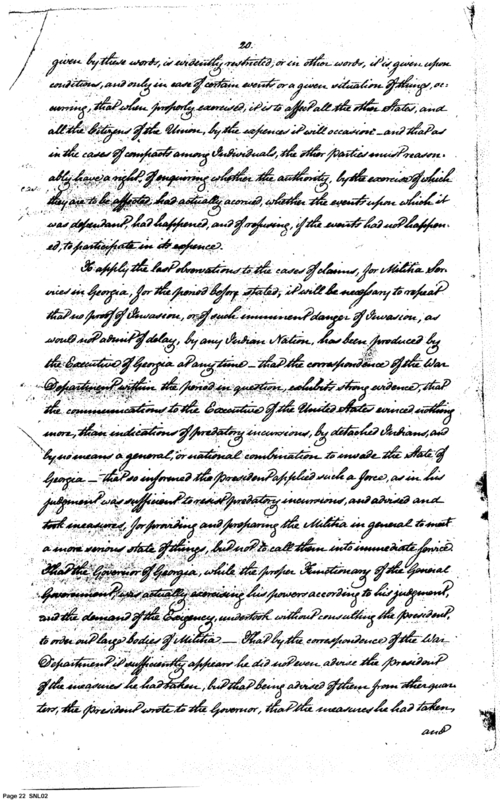 20.
given by these words, is evidently restricted, or in other words, it is given upon
conditions, and only in case of certain events or a given situation of things, oc-
curring, that when properly exercised, it is to affect all the other States, and
all the Citizens of the Union, by the expences it will occasion - and that as
in the cases of compacts among Individuals, the other parties must reason-
ably have a right of enquiring whether the authority, by the exercise of which
they are to be affected, had actually accrued, whether the events upon which it
was dependant, had happened, and of refusing, if the events had not happen-
ed, to participate in its expence.
To apply the last observations to the cases of claims, for Militia Ser-
vices in Georgia, for the period before stated, it will be necessary to repeat
that no proof of Invasion, or of such imminent danger of Invasion, as
would not admit of delay, by any Indian Nation, has been produced by
the Executive of Georgia at any time - that the correspondence of the War
Department within the period in question, exhibits strong evidence, that
the communications to the Executive of the United States evinced nothing
more, than indications of predatory incursions, by detached Indians, and
by no means a general, or national combination to invade the State of
Georgia - that so informed the President applied such a force, as in his
judgment was sufficient to resist predatory incursions, and advised and
took measures, for providing and preparing the Militia in general to meet
a more serious state of things, but not to call them into immediate service.
That the Governor of Georgia, while the proper Functionary of the General
Government, was actually exercising his powers according to his judgment,
and the demand of the Exigency, undertook without consulting the President,
to order out large bodies of Militia - That by the correspondence of the War
Department it sufficiently appears he did not even advise the President
of the measures he had taken, but that being advised of them from other quar-
ters, the President wrote to the Governor, that the measures he had taken,
and
Page 22 SNL02